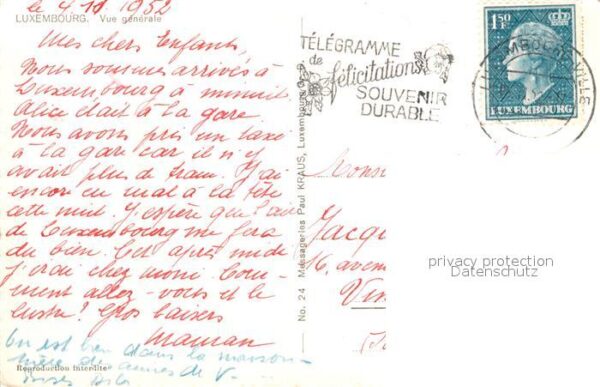 le 4.11 1952
LUXEMBOURG. Vue générale
Mes chers Enfants,
Nous sommes arrivés à
Luxembourg à minuit
Alice était à la gare.
Nous avons pris un taxi
à la gare car il n'y
avait plus de tram. J'ai
encore eu mal à la tête
cette nuit. J'espère que l'air
de Luxembourg me fera
du bien. Cet après midi
j'irai chez moni. Com-
ment allez-vous et le
lustre? Gros baisers
Maman
On est bien dans la maison
de
Reproduction interdite
No. 24 Messageries Paul KRAUS, Luxembourg
TÉLÉGRAMME
de félicitations
SOUVENIR
DURABLE
1,50
F
LUXEMBOURG
LUXEMBOURG-VILLE
Mons
Jacqu
16, avenu
Vin
privacy protection
Datenschutz